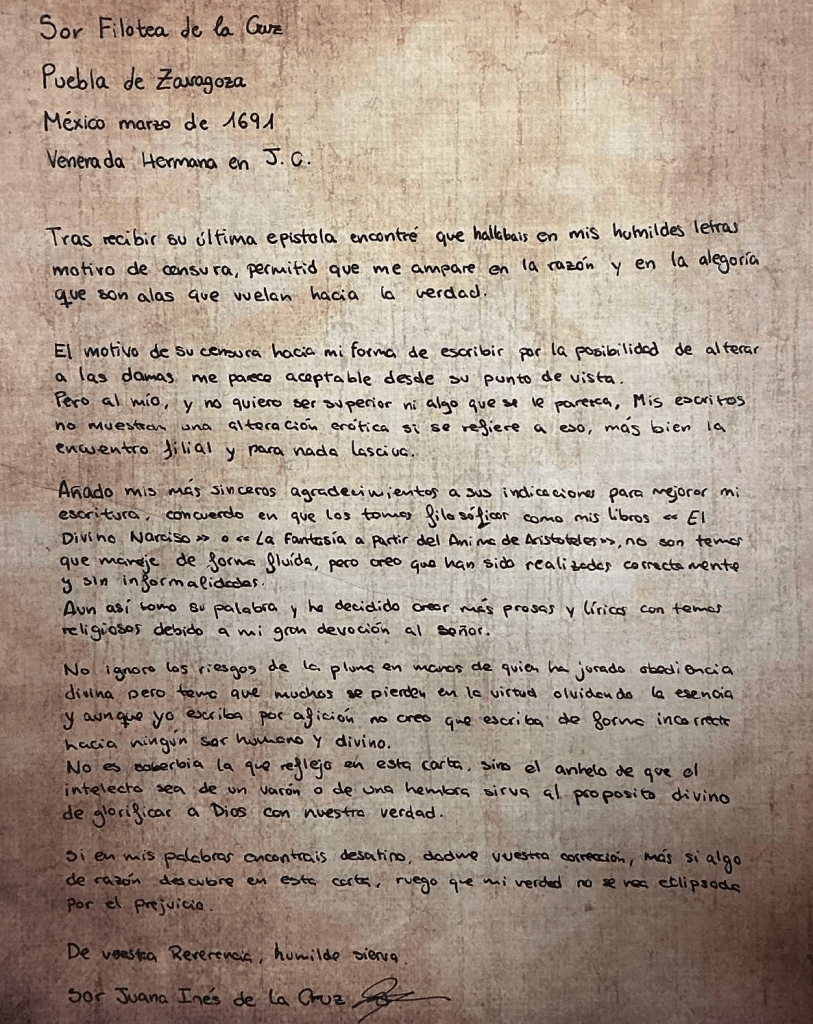 Sor Filotea de la Cruz
Puebla de Zaragoza
México marzo de 1691
Venerada Hermana en J.C.
Tras recibir su última epistola encontré que hallabais en mis humildes letras
motivo de censura, permitid que me ampare en la razón y en la alegoría
que son alas que vuelan hacia la verdad.
El motivo de su censura hacia mi forma de escribir por la posibilidad de alterar
a las damas me parece aceptable desde su punto de vista.
Pero al mío, y no quiero ser superior ni algo que se le parezca, Mis escritos
no muestran una alteración erótica si se refiere a eso, más bien la
encuentro filial y para nada lasciva.
Añado mis más sinceros agradecimientos a sus indicaciones para mejorar mi
escritura, concuerdo en que los temas filosóficos como mis libros << El
Divino Narciso >> o << La Fantasía a partir del Anima de Aristoteles >>, no son temas
que maneje de forma fluída, pero creo que han sido realizadas correctamente
y sin informalidades.
Aun así tomo su palabra y he decidido crear más prosas y líricas con temas
religiosos debido a mi gran devoción al señor.
No ignoro los riesgos de la pluma en manos de quien ha jurado obediencia
divina pero temo que muchos se pierden en la virtud olvidando la esencia
y aunque yo escriba por afición no creo que escriba de forma incorrecta
hacia ningún ser humano y divino.
No es soberbia la que reflejo en esta carta, sino el anhelo de que el
intelecto sea de un varón o de una hembra sirva al proposito divino
de glorificar a Dios con nuestra verdad.
Si en mis palabras encontrais desatino, dadme vuestra corrección, más si algo
de razón descubre en esta carta, ruego que mi verdad no se vea eclipsada
por el prejuicio.
De vuestra Reverencia, humilde sierva.
Sor Juana Inés de la Cruz